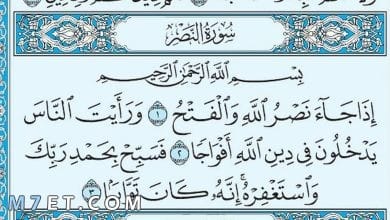 سُورَةُ النَّصْرِ
بِسْمِ اللَّهِ الرَّحْمَٰنِ الرَّحِيمِ
إِذَا جَاءَ نَصْرُ اللَّهِ وَالْفَتْحُ ١ وَرَأَيْتَ النَّاسَ
يَدْخُلُونَ فِي دِينِ اللَّهِ أَفْوَاجًا ٢ فَسَبِّحْ بِحَمْدِ رَبِّكَ
وَاسْتَغْفِرْهُ إِنَّهُ كَانَ تَوَّابًا ٣
MZET.COM